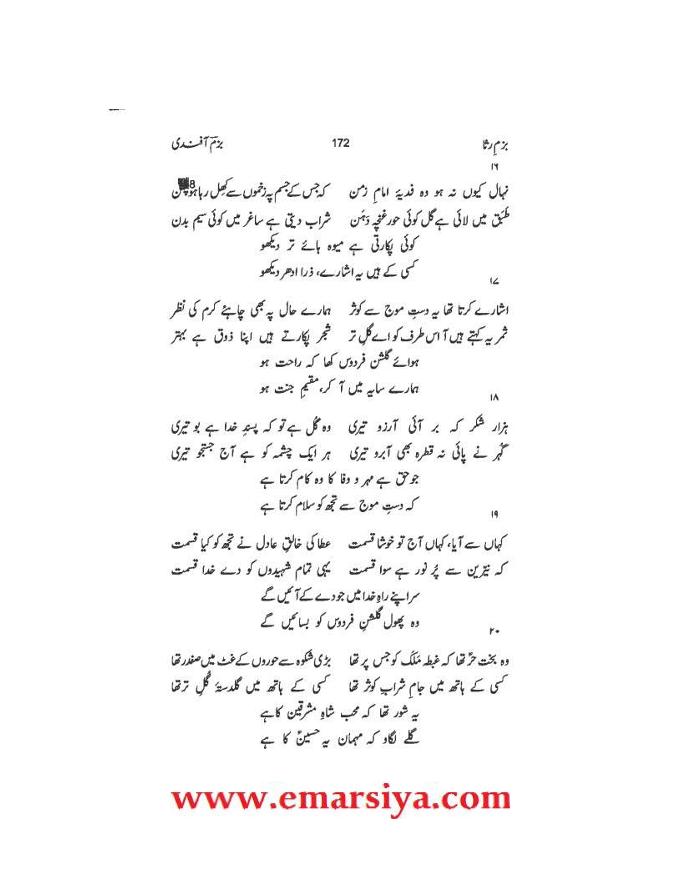 بزمِ رثا 172 بزمؔ آفندی
۱۶
نہال کیوں نہ ہو وہ فدیۂ امامِ زمن کہ جس کے جسم پہ زخموں سے کھل رہا ہو
طبق میں لائی ہے گل کوئی حور غنچہ دَہَن شراب دیتی ہے ساغر میں کوئی سیم بدن
کوئی پکارتی ہے میوہ ہائے تر دیکھو
کسی کے ہیں یہ اشارے، ذرا ادھر دیکھو
۱۷
اشارے کرتا تھا یہ دستِ موج سے کوثر ہمارے حال پہ بھی چاہئے کرم کی نظر
ثمر یہ کہتے ہیں آ اس طرف کو اے گلِ تر شجر پکارتے ہیں اپنا ذوق ہے بہتر
ہوائے گلشنِ فردوس کھا کہ راحت ہو
ہمارے سایہ میں آ کر، مقیمِ جنت ہو
۱۸
ہزار شکر کہ بر آئی آرزو تیری وہ گُل ہے تو کہ پسندِ خدا ہے بو تیری
گہر نے پائی نہ قطرہ بھی آبرو تیری ہر ایک چشمہ کو ہے آج جستجو تیری
جو حق ہے مہر و وفا کا وہ کام کرتا ہے
کہ دستِ موج سے تجھ کو سلام کرتا ہے
۱۹
کہاں سے آیا، کہاں آج تو خوشا قسمت عطا کی خالقِ عادل نے تجھ کو کیا قسمت
کہ نیّرین سے پُر نور ہے سوا قسمت یہی تمام شہیدوں کو دے خدا قسمت
سر اپنے راہِ خدا میں جو دے کے آئیں گے
وہ پھول گلشنِ فردوس کو بسائیں گے
۲۰
وہ بخت حرؑ تھا کہ غبطہ مَلَک کو جس پر تھا بڑی شکوہ سے حوروں کے غٹ میں صفدر تھا
کسی کے ہاتھ میں جامِ شرابِ کوثر تھا کسی کے ہاتھ میں گلدستۂ گُلِ تر تھا
یہ شور تھا کہ محب شاہِ مشرقین کا ہے
گلے لگاو کہ مہمان یہ حسینؑ کا ہے
www.emarsiya.com